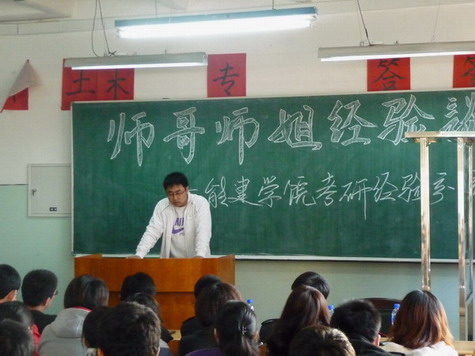 土木 专 答
师哥师姐经验谈
能建学院考研经验分